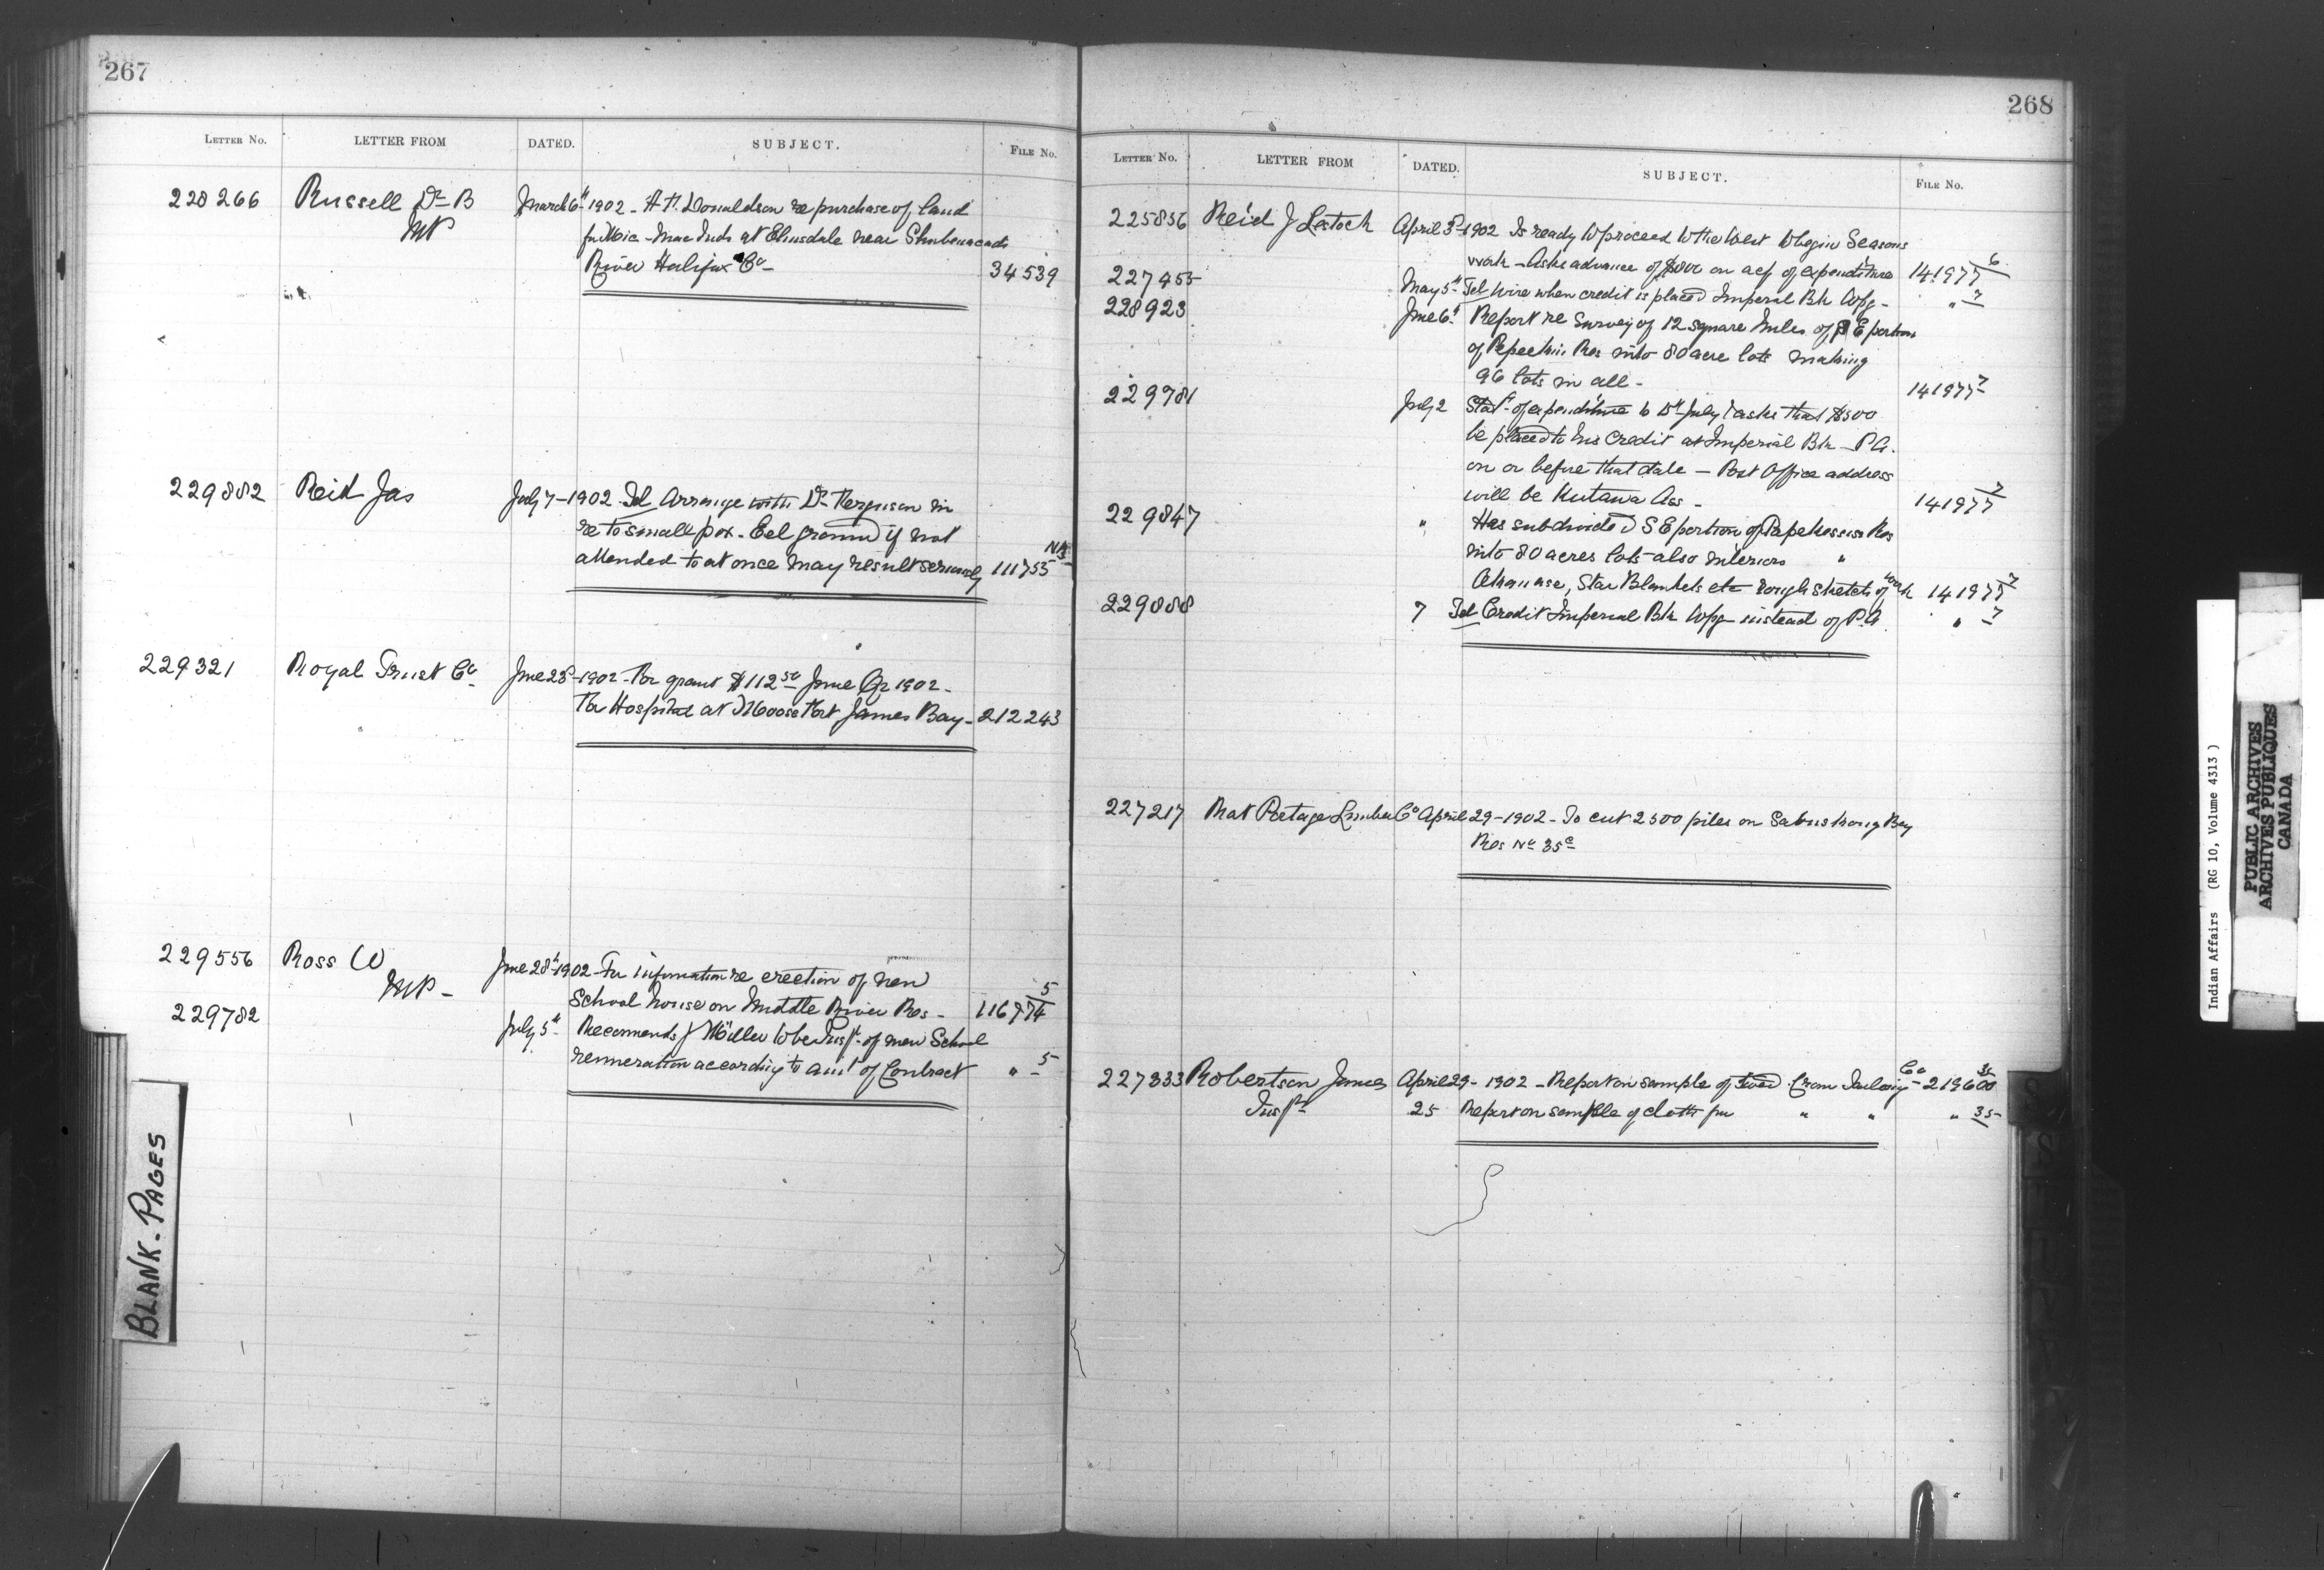 267
LETTER No. LETTER FROM DATED. SUBJECT. FILE No.
228266 Russell Dr B March 6th 1902 - H. Donaldson re purchase of land
MP for Mic-Mac Inds at Elmsdale near Shubenacadie
River Halifax Co - 34539
229882 Reid Jas July 7 - 1902 Tel Arrange with Dr Ferguson in
re to small pox - Eel ground if not NA
attended to at once may result seriously 111755
229321 Royal Trust Co June 28 - 1902 - For grant $112 50 June Qr 1902 -
For Hospital at Moose Fort James Bay - 212243
229556 Ross W June 28th 1902 - For information re erection of new
MP - School house on Middle River Res - 116974 5
229782 July 5th Recommends J Miller to be Inspt of new School
remuneration according to amt of Contract " 5
268
LETTER No. LETTER FROM DATED. SUBJECT. FILE No.
225836 Reid J Lestock April 3rd 1902 Is ready to proceed to the West to begin Seasons
work - Asks advance of $800 on acf of expenditure 141977 6
227455 May 5th Tel Wire when credit is placed Imperial Bk Wpg - " 7
228923 June 6th Report re Survey of 12 square miles of S E portion
of Res into 80 acre lots making
96 lots in all - 141977 7
229781 July 2 Statt of expenditure to 15th July & asks that $500
be placed to his credit at Imperial Bk - P.A.
on or before that date - Post Office address
will be Kutawa Ass - 141977 7
229847 " Has subdivided S E portion of Papekessis Res
into 80 acres lots also interiors "
Star Blankets etc rough sketch of work 141977 7
229888 7 Tel Credit Imperial Bk Wpg instead of P.A " 7
227217 Rat Portage Lumber Co April 29 - 1902 - To cut 2500 piles on Bay
Res No 35c
227333 Robertson James April 29 - 1902 - Report on sample of from Co - 219600 35
Inspt 25 Report on sample of cloth fm " " " 35
BLANK-PAGES
Indian Affairs (RG 10, Volume 4313)
PUBLIC ARCHIVES
ARCHIVES PUBLIQUES
CANADA